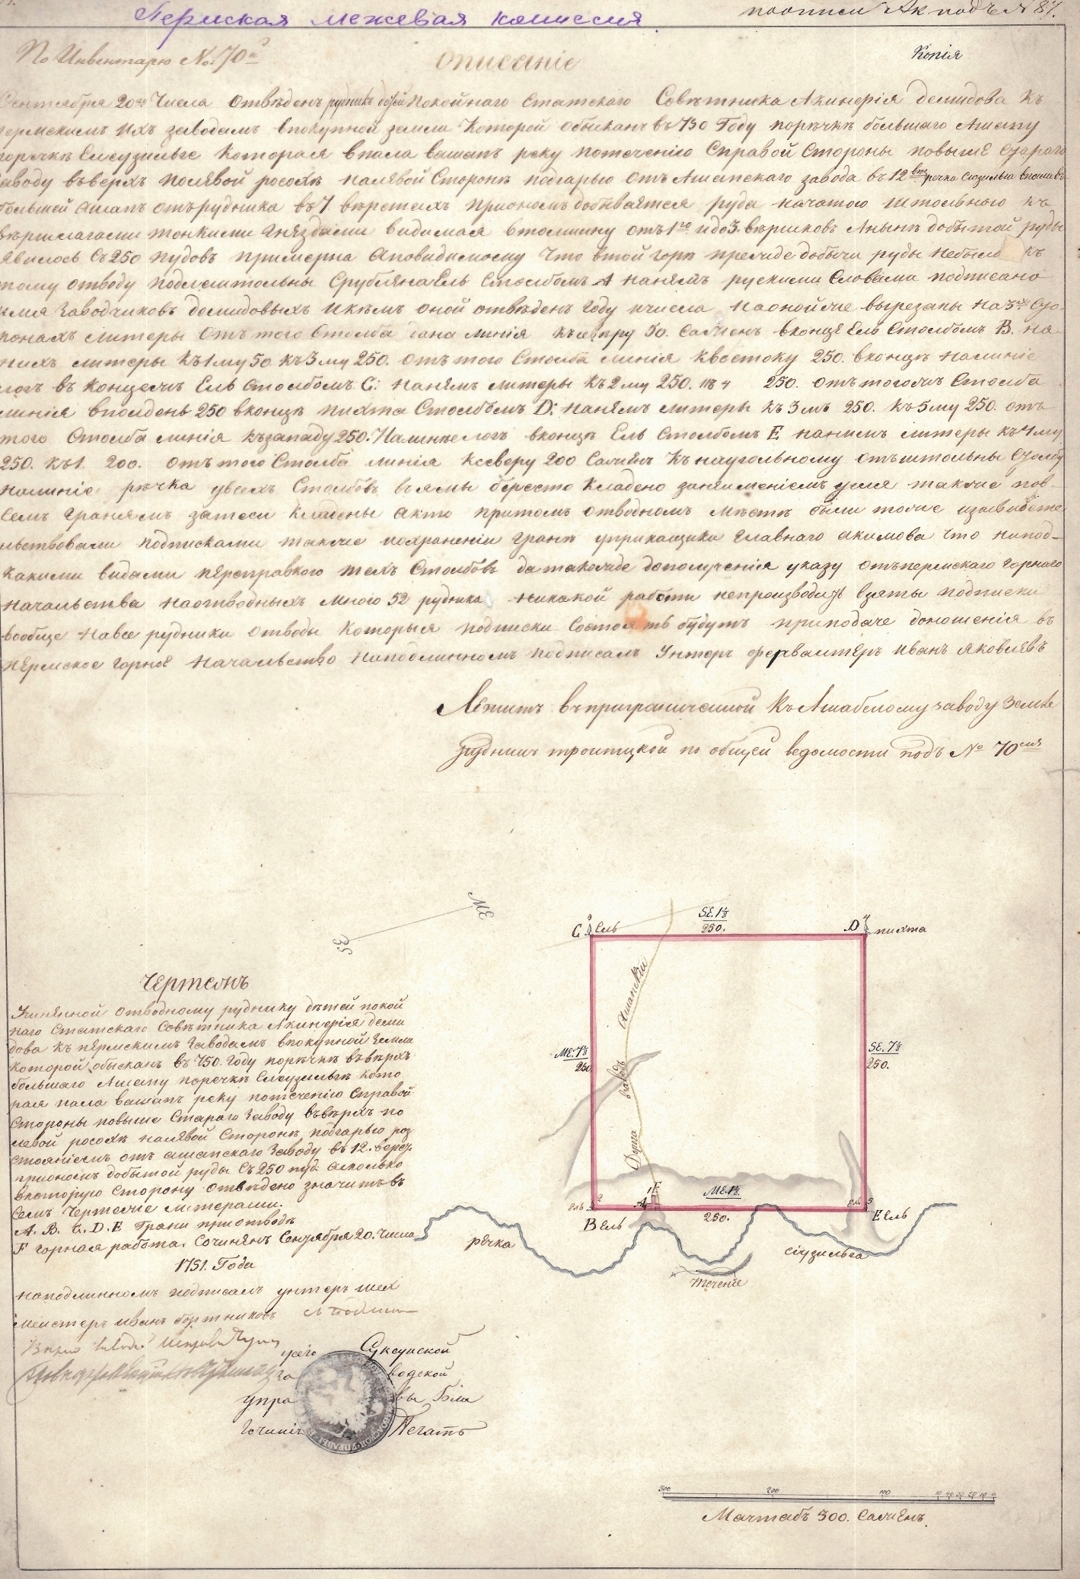 Пермская межевая комиссия
по описи Ак подъ № 87.
По Инвентарю №. 70
Описаніе
Копія
Сентября 20го Числа отведен рудник детей Покойнаго Статскаго Советника Акинфія демидова къ
пермскимъ ихъ заводамъ впокупной земле Которой обысканъ въ 750 Году поречке большаго Ашапу
поречке Сеузильге Которая впала вашапъ реку потеченію Справой Стороны повыше Стараго
заводу въверхъ полевой росохе налевой Стороне подгарью отъ Ашапскаго завода въ 12 верс речка Сіозилга впала въ
большей ашап отърудника въ 7 верстахъ Прионом добывается руда начатою штольною къ
вершлагами тонкими гнездами видимая втолщину отъ 1го идо 3 вершковъ Анынъ добытой руды
явилось С 250 пудовъ примерна Аповидимому Что втой горе прежде добычи руды небыло къ
тому отводу Подлештольны Срублена Ель Столбомъ А наняя рускими Словами подписано
имя Заводчиковъ демидовыхъ икемъ оной отведенъ Году ичисла Наонойже вырезаны на 3хъ Сто-
ронахъ литеры отъ того Столба дана линія Късеверу 50. Саженъ вконце Ель Столбомъ В. на-
нихъ литеры къ 1му 50 къ 3му 250. отъ того Столба линія Квостоку 250. вконце налиніе
логъ въ Концежъ Ель Столбомъ С: нанямъ литеры къ 2му 250. 250. отъ тогожъ Столба
линія вполдень 250 вконце пихта Столбомъ D: нанямъ литеры къ 3мъ 250. къ 5му 250. отъ
того Столба линія къзападу 250. Налиніе логъ вконце Ель Столбомъ Е нанимъ литеры къ 4му
250. къ 1. 200. отъ того Столба линія Ксеверу 200 Саженъ Къ науголному отъштольны Столбу
налиніе речка увсехъ Столбовъ въ ямы бересто Кладено занеименіемъ угля такъже пов-
семъ гранямъ затеси Кладены Акто притомъ отводномъ месте были тоже изасвиде-
тельствовали подписками такъже исохраненіи гранъ уприкащика Главнаго акимова что нипод-
какими видами переправкою техъ Столбовъ датакожде дополученія указу отъпермскаго Горнаго
Начальства наотводныхъ Много 52 рудника никакой работы непроизводить Взяты подписки
вообще навсе рудники отводы Которыя подписки Состоятъ будутъ приподаче доношенія въ
пермское горное Начальство наподлинномъ подписалъ Унтеръ ферваитеръ Иванъ Яковлевъ
Лежитъ въприграниченной къ Ашабскому заводу Земле
рудникъ троитцкой по общей ведомости подъ № 70мъ
ME
SE
Чертежъ
Учиненной отводному руднику детей покой
наго Статскаго Советника Акинфія деми
дова къ пермскимъ Заводамъ впокупной земле
Которой обысканъ въ 750. году поречке въверхъ
большаго Ашапу поречке Сеузильге кото
рая пала вашапъ реку потеченію Справой
Стороны повыше Стараго Заводу въверхъ по
левой росохе налевой Стороне подгарью роз
стояніемъ отъ ашапскаго Заводу въ 12. верст
прионом добытой руды С 250 пуд. Асколько
вкоторую Сторону отведено значитъ въ
Семъ Чертеже литерами.
А. В. С. D. E Грани приотводе
F горная работа. Сочиненъ Сентября 20. Числа
1751. Года
наподлинномъ подписалъ унтеръ шех
мейстеръ иванъ бортниковъ
Суксунской
водской
упра
Била
Печать
C
Ель
SE. 1⅓
250.
D
пихта
ME. 7⅓
250
SE. 7⅓
250.
Ашапскій
заводъ
Дорога
F
A
ME 1⅓
250.
B Ель
E Ель
речка
сіузильга
течение
300 200 100
Маштабъ 300. Саженъ.